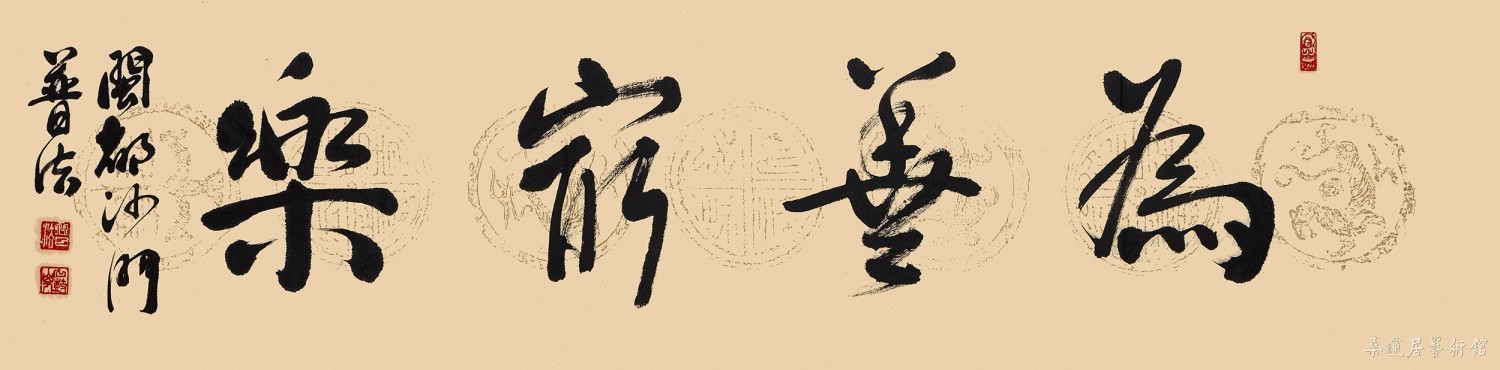 為善最樂
閩都沙門
普法
桑蓮居藝術館